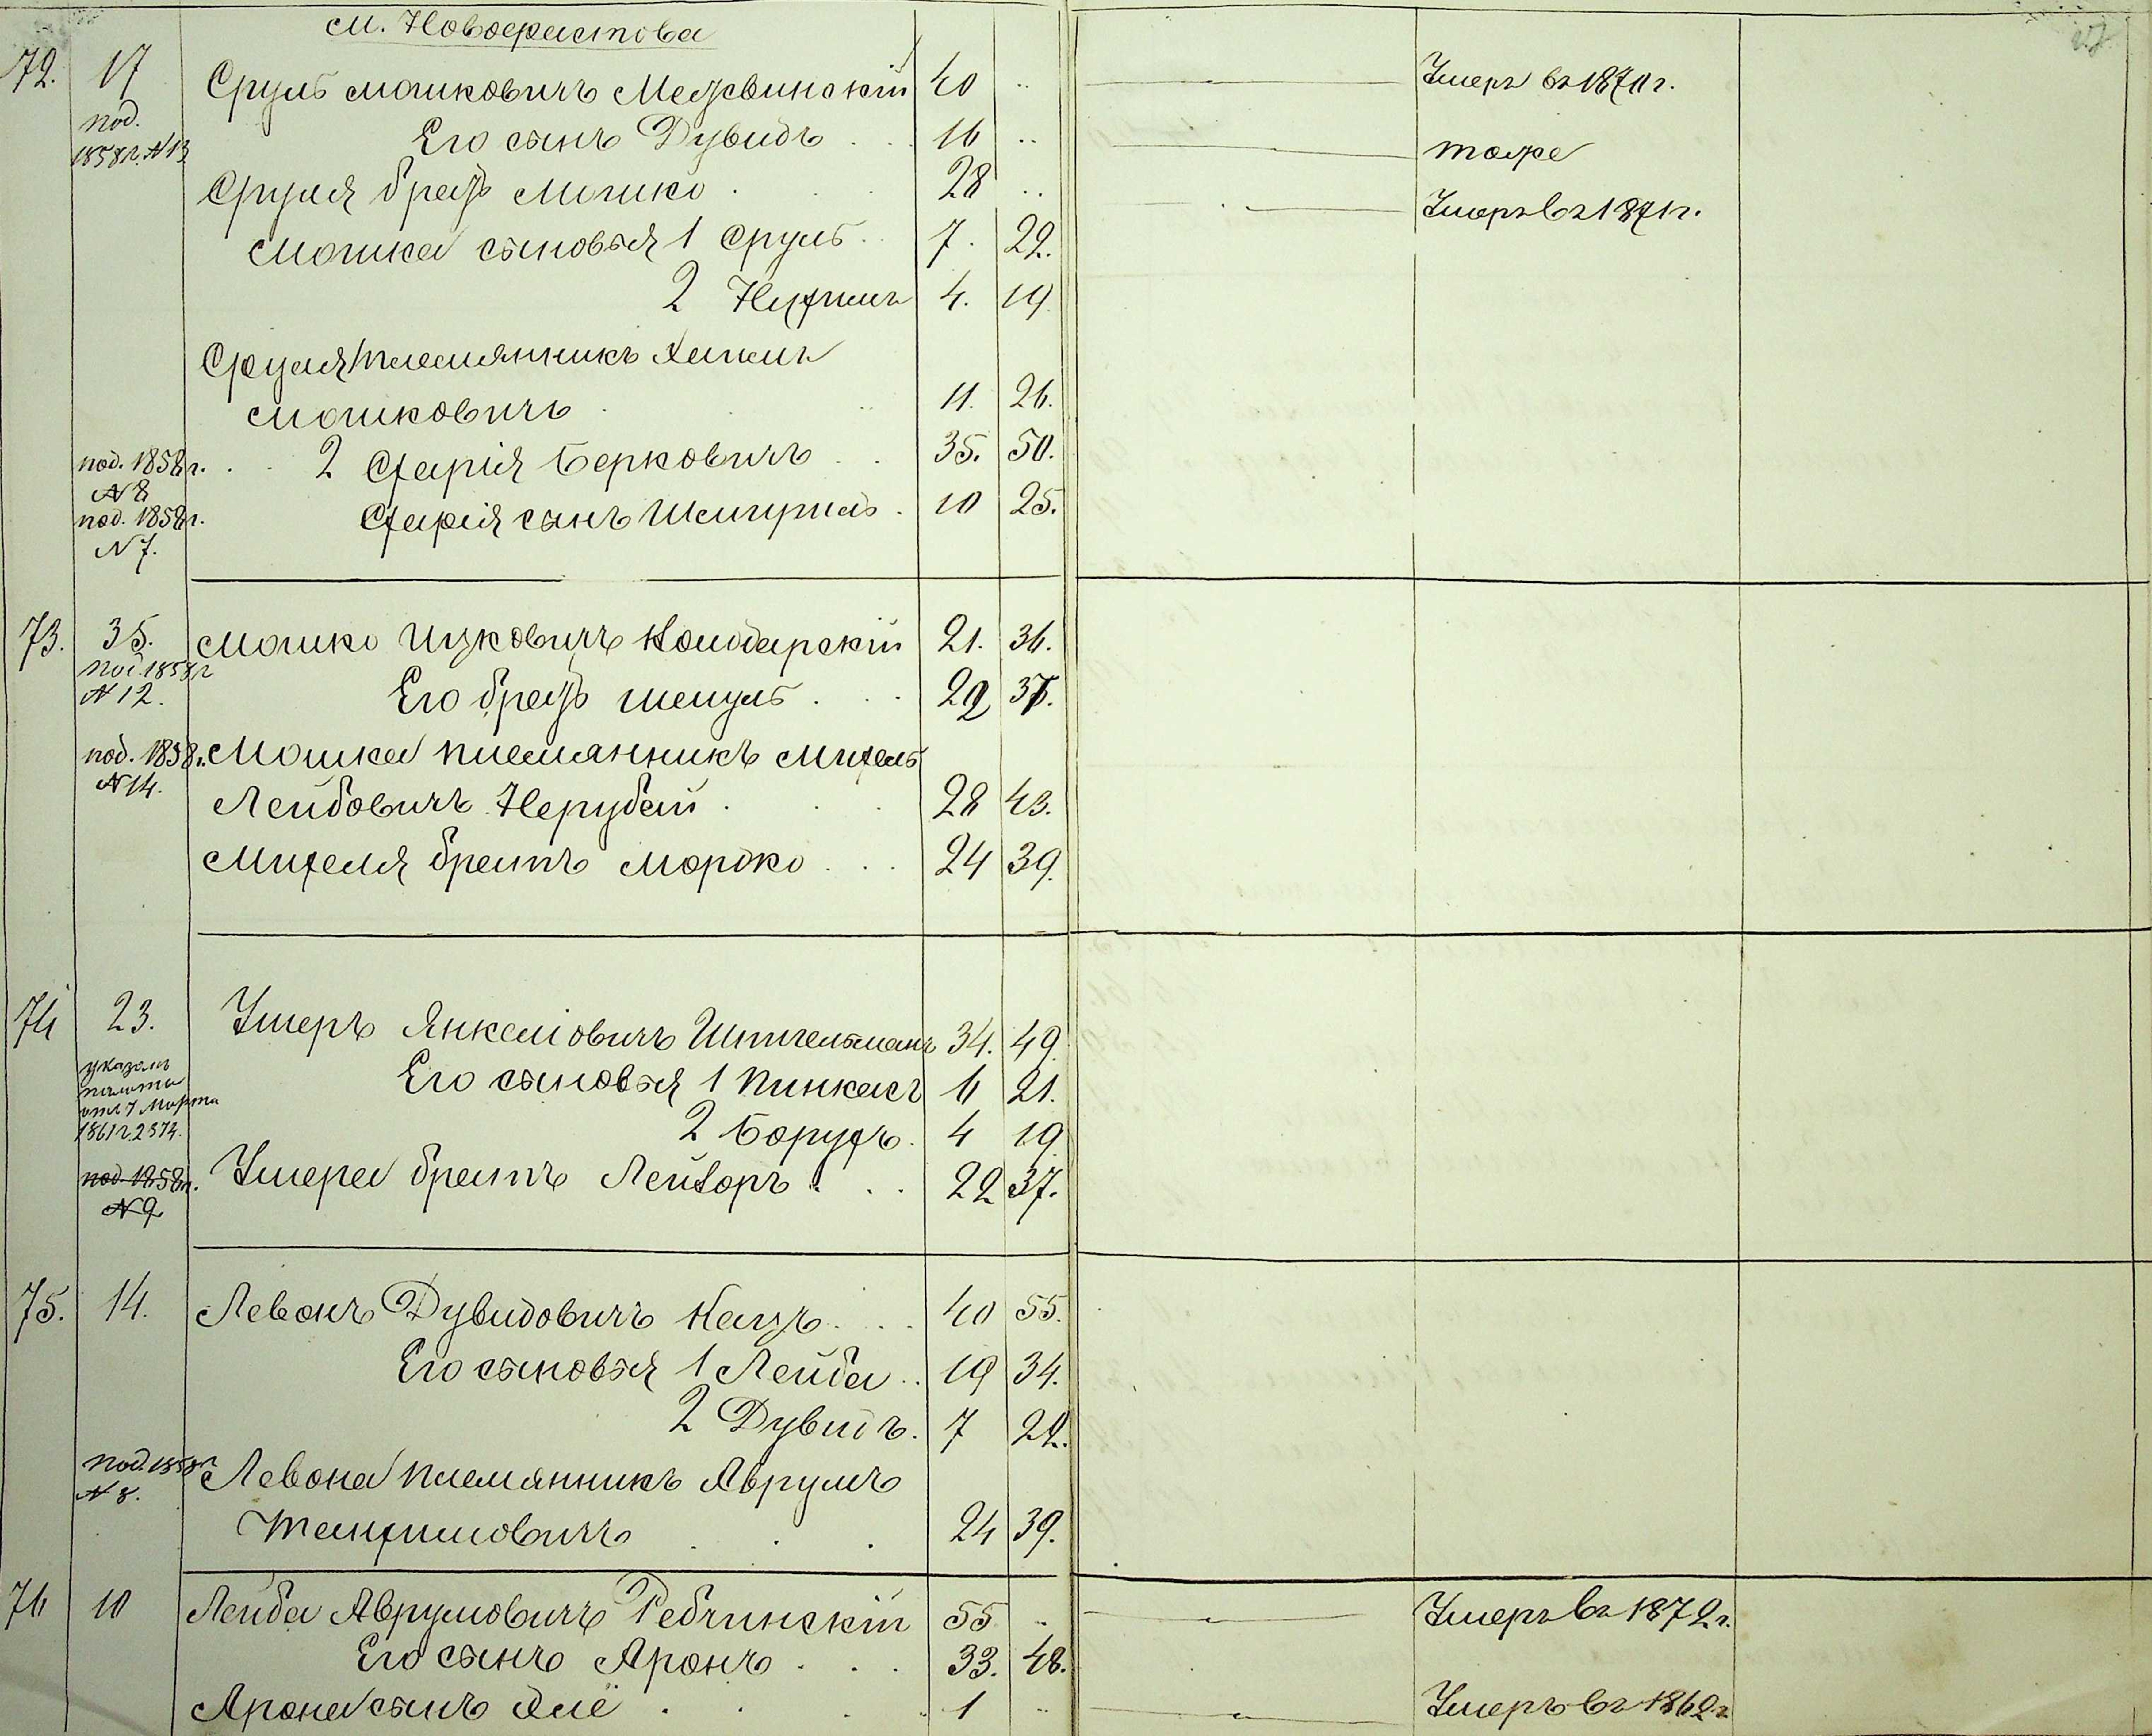 м. Новофастова
72. 17 Сруль Мошковичъ Медвинскій 40 .. Умеръ въ 1870 г.
под. 1858 г. N 13 Его сынъ Дувидъ 16 .. тоже
Сруля братъ Мошко 28 .. Умеръ въ 1871 г.
Мошка сыновья 1 Сруль 7. 22.
2 Нухимъ 4. 19
Сруля племянникъ Хаимъ
Мошковичъ 11. 26.
под. 1858 г. N 8 2 Сахарія Берковичъ 35. 50.
под. 1858 г. N 7. Сахарія сынъ Шмиріль 10 25.
73. 35. Мошко Ицковичъ Колодарскій 21. 36.
под. 1858 г. N 12. Его братъ Шмуль 22 37.
под. 1858 г. N 14. Мошка племянникъ Михель
Лейбовичъ Нерубай 28 43.
Михеля братъ Мордко 24 39.
74 23. Умеръ Янкеліовичъ Шпигельманъ 34. 49.
указомъ палаты отъ 7 Марта 1861 г. 2374. Его сыновья 1 Пинкасъ 6 21.
2 Борухъ 4 19
под. 1858 г. N 9 Умера братъ Лейзоръ 22 37.
75. 14. Левонъ Дувидовичъ Кацъ 40 55.
Его сыновья 1 Лейба 19 34.
2 Дувидъ 7 22.
под. 1858 г. N 8. Левона племянникъ Аврумъ
Танхимовичъ 24 39.
76 10 Лейба Аврумовичъ Ребчинскій 55 .. Умеръ въ 1872 г.
Его сынъ Аронъ 33. 48.
Арона сынъ Элё 1 .. Умеръ въ 1862 г.